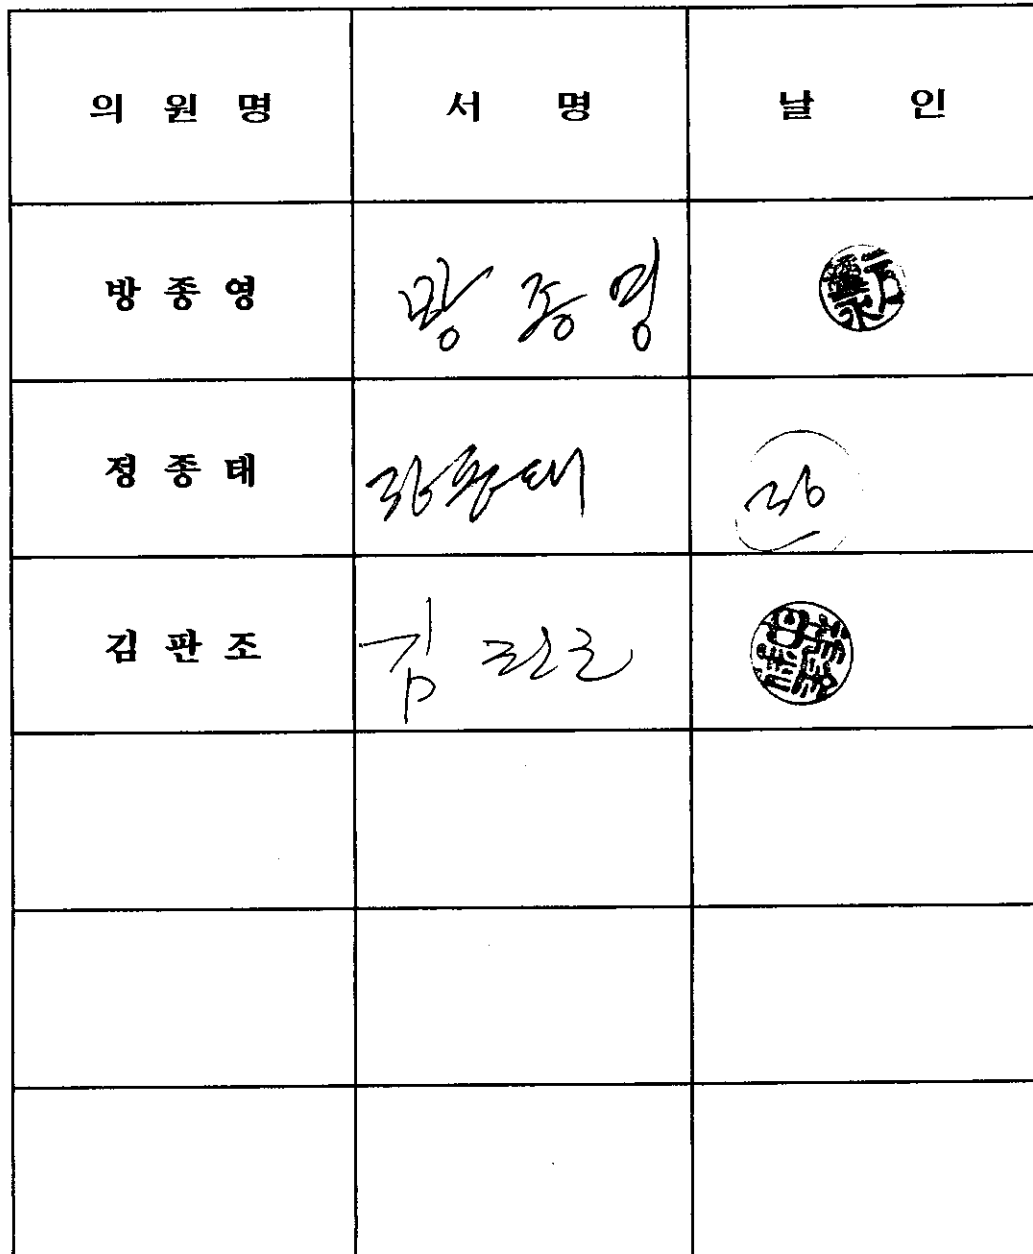 의 원 명 서 명 날 인
방 종 영 방 종 영
정 종 태 정종태
김 판 조 김 판조